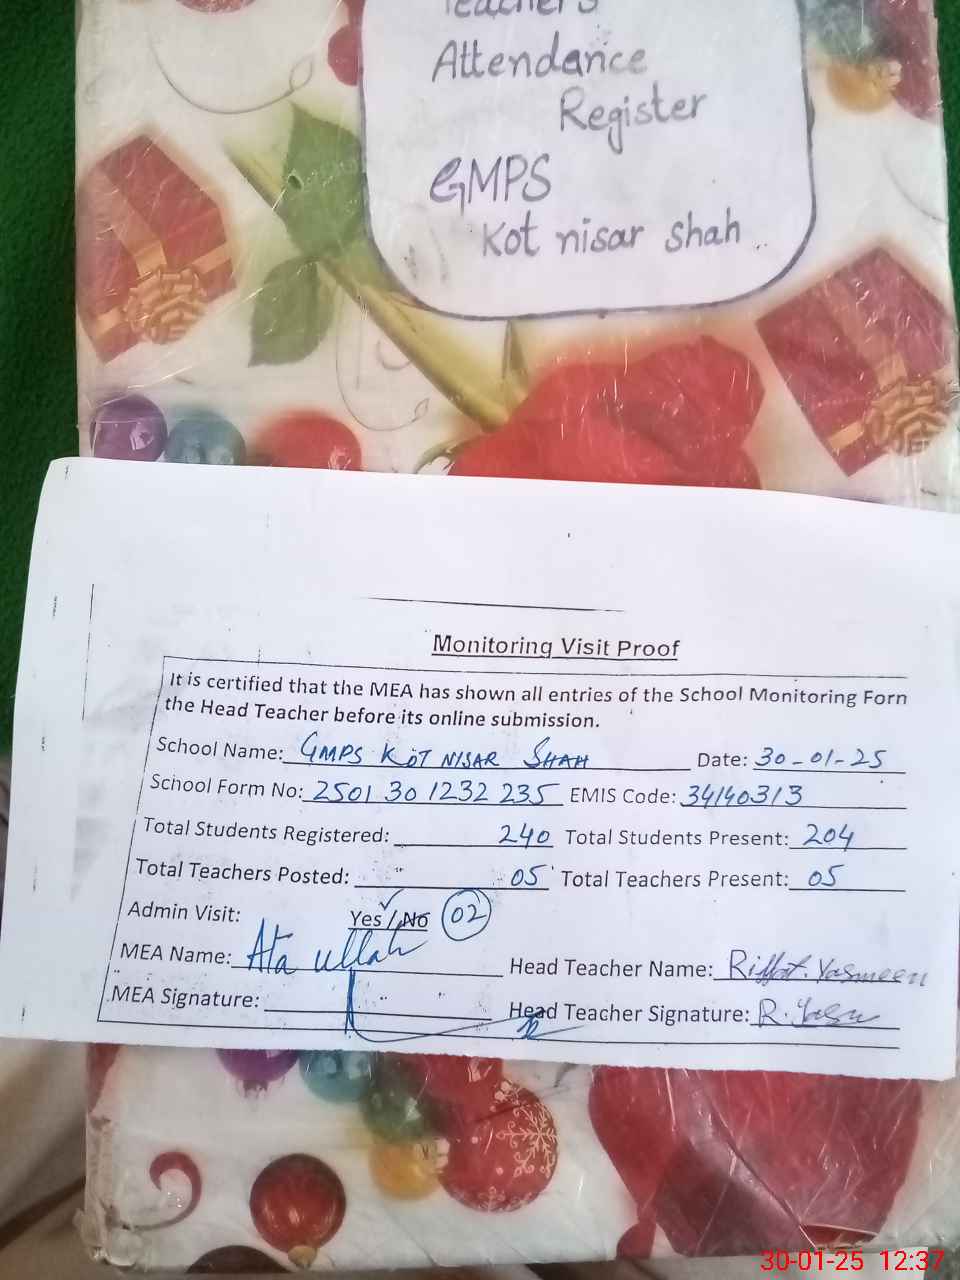 Teachers
Attendance
Register
GMPS
Kot nisar shah
Monitoring Visit Proof
It is certified that the MEA has shown all entries of the School Monitoring Forn
the Head Teacher before its online submission.
School Name: GMPS KOT NISAR SHAH Date: 30-01-25
School Form No: 2501 30 1232 235 EMIS Code: 34140313
Total Students Registered: 240 Total Students Present: 204
Total Teachers Posted: 05 Total Teachers Present: 05
Admin Visit: Yes / No 02
MEA Name: Ata ullah Head Teacher Name: Riffat. Yasmeen
MEA Signature: Head Teacher Signature: R. Yasm
30-01-25 12:37